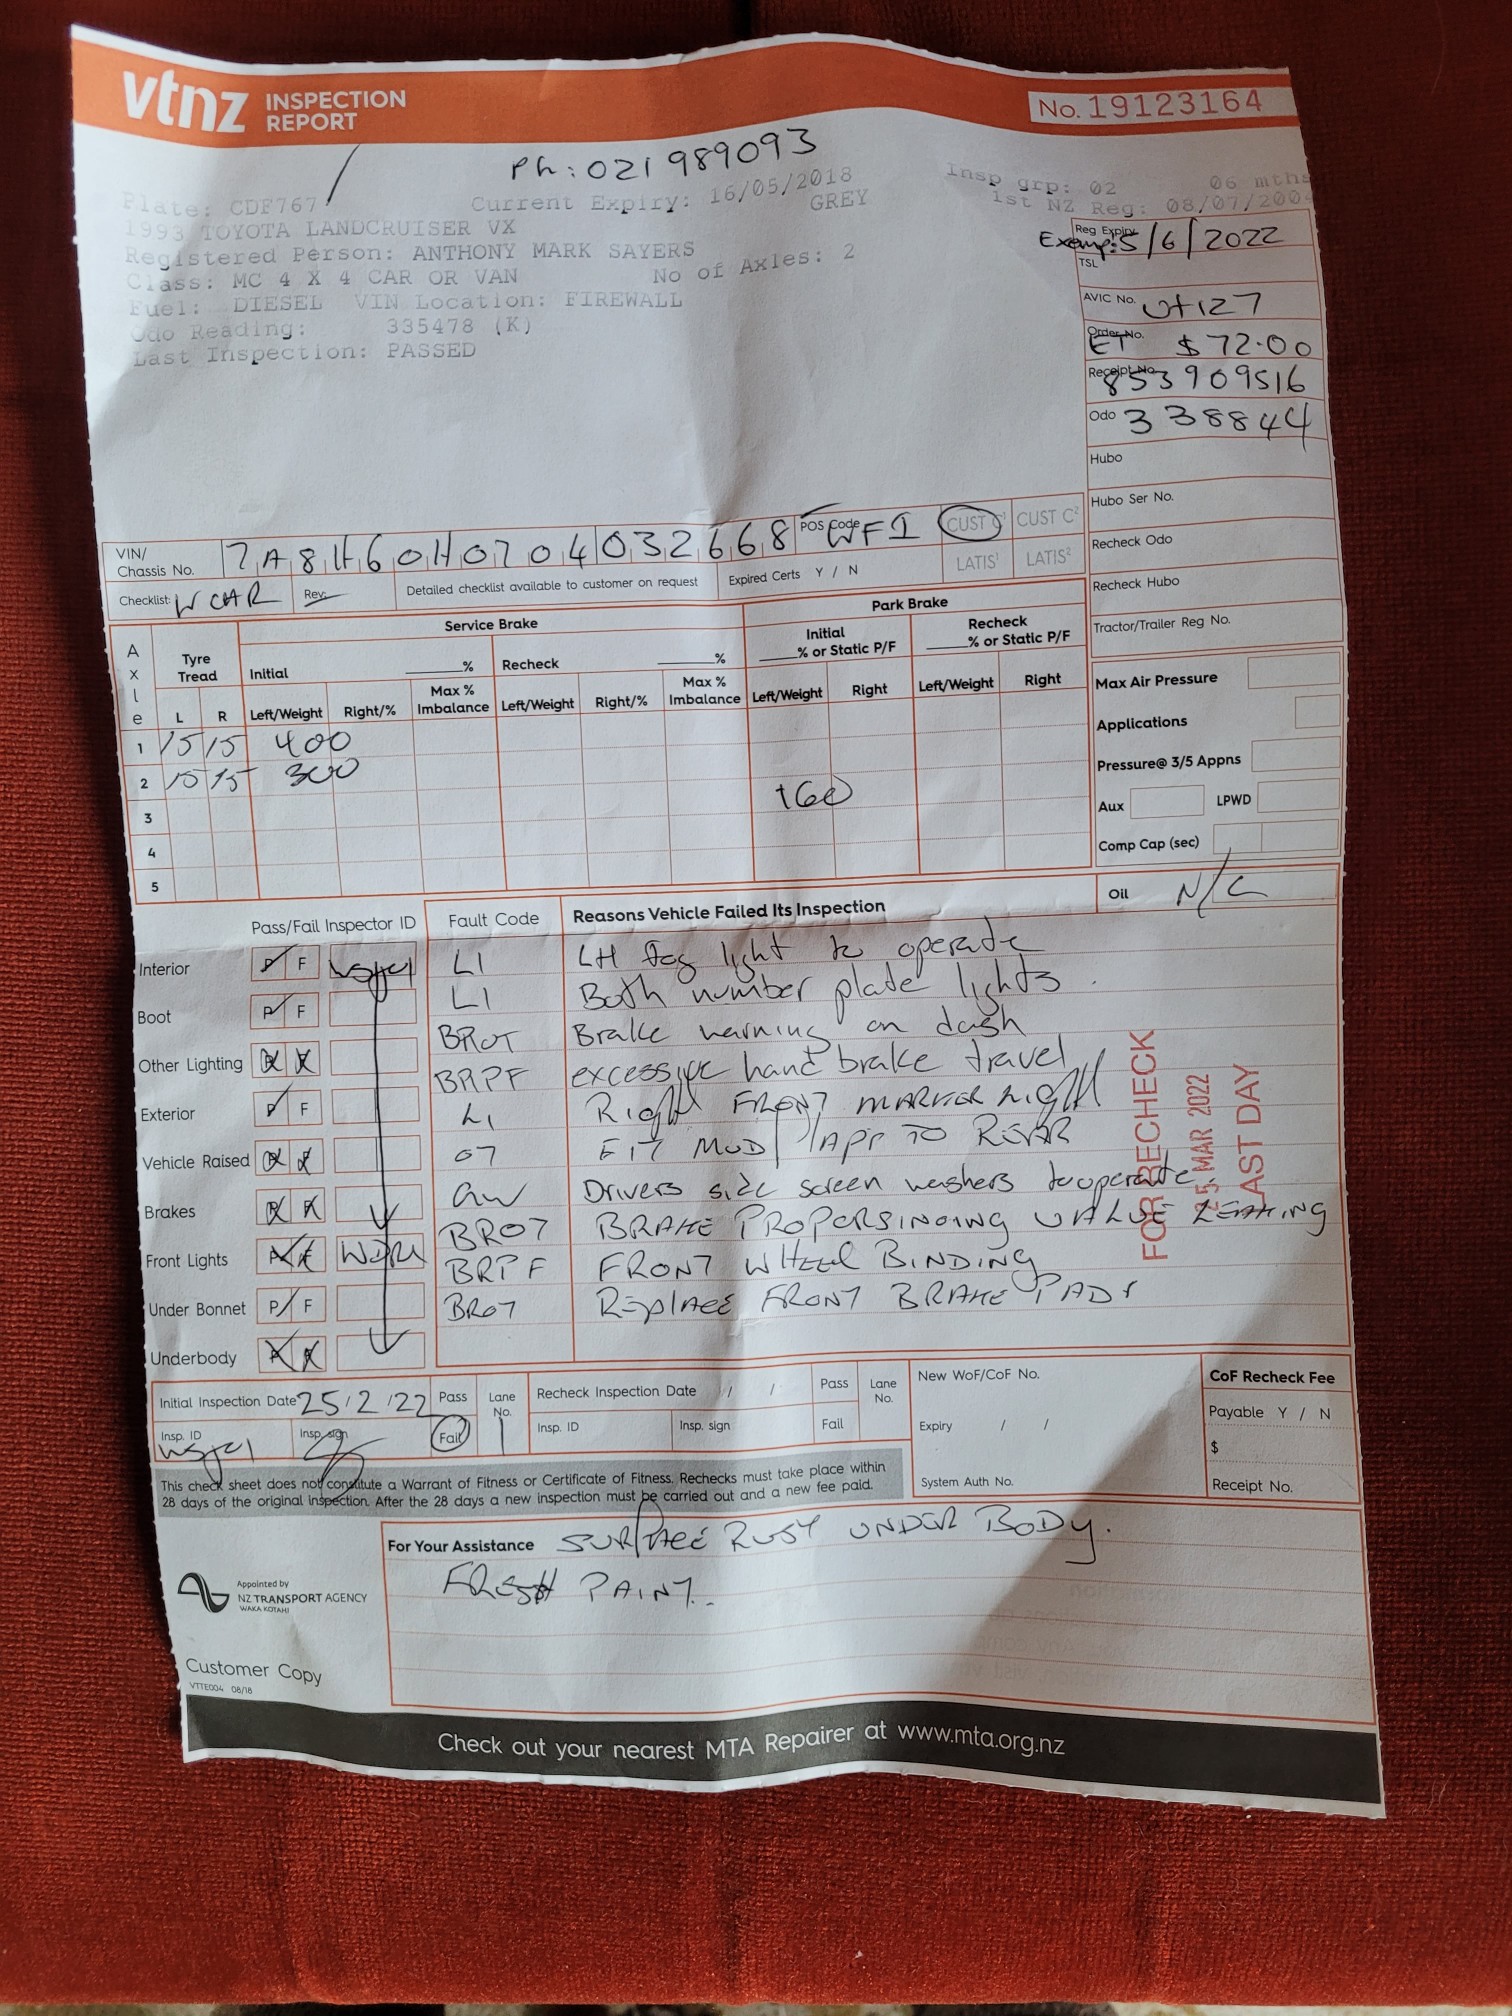 vtnz INSPECTION REPORT
No. 19123164
Ph: 021 989093
Plate: CDF767 Current Expiry: 16/05/2018 Insp grp: 02 06 mths
1993 TOYOTA LANDCRUISER VX GREY 1st NZ Reg: 08/07/200
Registered Person: ANTHONY MARK SAYERS
Class: MC 4 X 4 CAR OR VAN No of Axles: 2
Fuel: DIESEL VIN Location: FIREWALL
Odo Reading: 335478 (K)
Last Inspection: PASSED
Reg Expiry 5/6/2022
TSL
AVIC No.
Order No. ET $72.00
Receipt No. 853909516
Odo 338844
Hubo
Hubo Ser No.
Recheck Odo
Recheck Hubo
Tractor/Trailer Reg No.
VIN/ Chassis No. 7A8H60H0704032668 POS Code WF1 CUST C¹ CUST C²
Checklist: WCAR Rev: Detailed checklist available to customer on request Expired Certs Y / N LATIS¹ LATIS²
Axle Tyre Tread Service Brake Park Brake
Initial % Recheck % Initial % or Static P/F Recheck % or Static P/F
L R Left/Weight Right/% Max % Imbalance Left/Weight Right/% Max % Imbalance Left/Weight Right Left/Weight Right
1 15 15 400
2 15 15 300
3 160
4
5
Max Air Pressure
Applications
Pressure@ 3/5 Appns
Aux LPWD
Comp Cap (sec)
Oil
Pass/Fail Inspector ID Fault Code Reasons Vehicle Failed Its Inspection
Interior P F L1 LH fog light to operate
Boot P F L1 Both number plate lights.
Other Lighting P F BROT Brake warning on dash
BRPF excessive hand brake travel
Exterior P F L1 RIGHT FRONT MARKER LIGHT
Vehicle Raised P F OT FIT MUD FLAP TO REAR
GW Drivers side screen washers to operate.
Brakes P F BROT BRAKE PROPERSINOING VALVE LEAKING
Front Lights P F BRPF FRONT WHEEL BINDING
Under Bonnet P F BROT REPLACE FRONT BRAKE PADS
Underbody P F
FOR RECHECK
25 MAR 2022
LAST DAY
Initial Inspection Date 25/2/22 Pass Lane No. 1 Recheck Inspection Date / / Pass Lane No.
Insp. ID Insp. sign Fail Insp. ID Insp. sign Fail
New WoF/CoF No.
Expiry / /
System Auth No.
CoF Recheck Fee
Payable Y / N
$
Receipt No.
This check sheet does not constitute a Warrant of Fitness or Certificate of Fitness. Rechecks must take place within
28 days of the original inspection. After the 28 days a new inspection must be carried out and a new fee paid.
For Your Assistance SURFACE RUST UNDER BODY.
FRESH PAINT.
Appointed by
NZ TRANSPORT AGENCY
WAKA KOTAHI
Customer Copy
VTTE004 08/18
Check out your nearest MTA Repairer at www.mta.org.nz